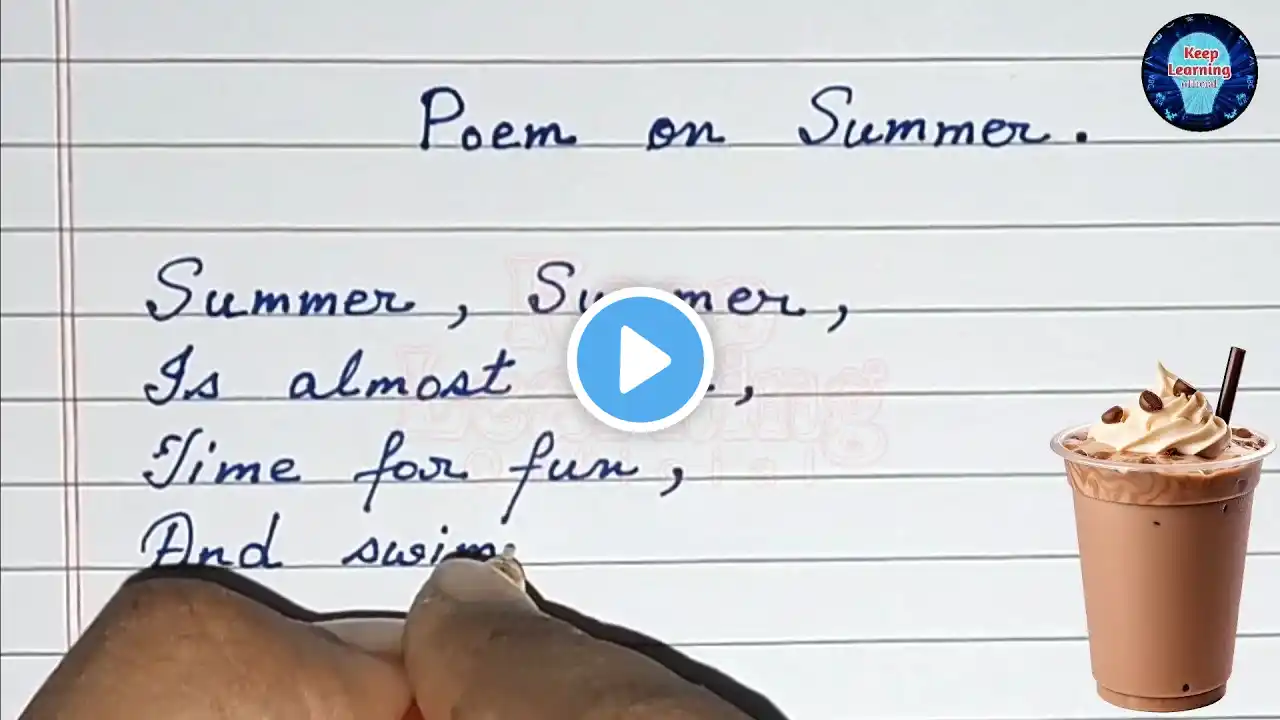 Keep
Learning
Official
Poem on Summer.
Summer, Summer,
Is almost ,
Time for fun,
And swim